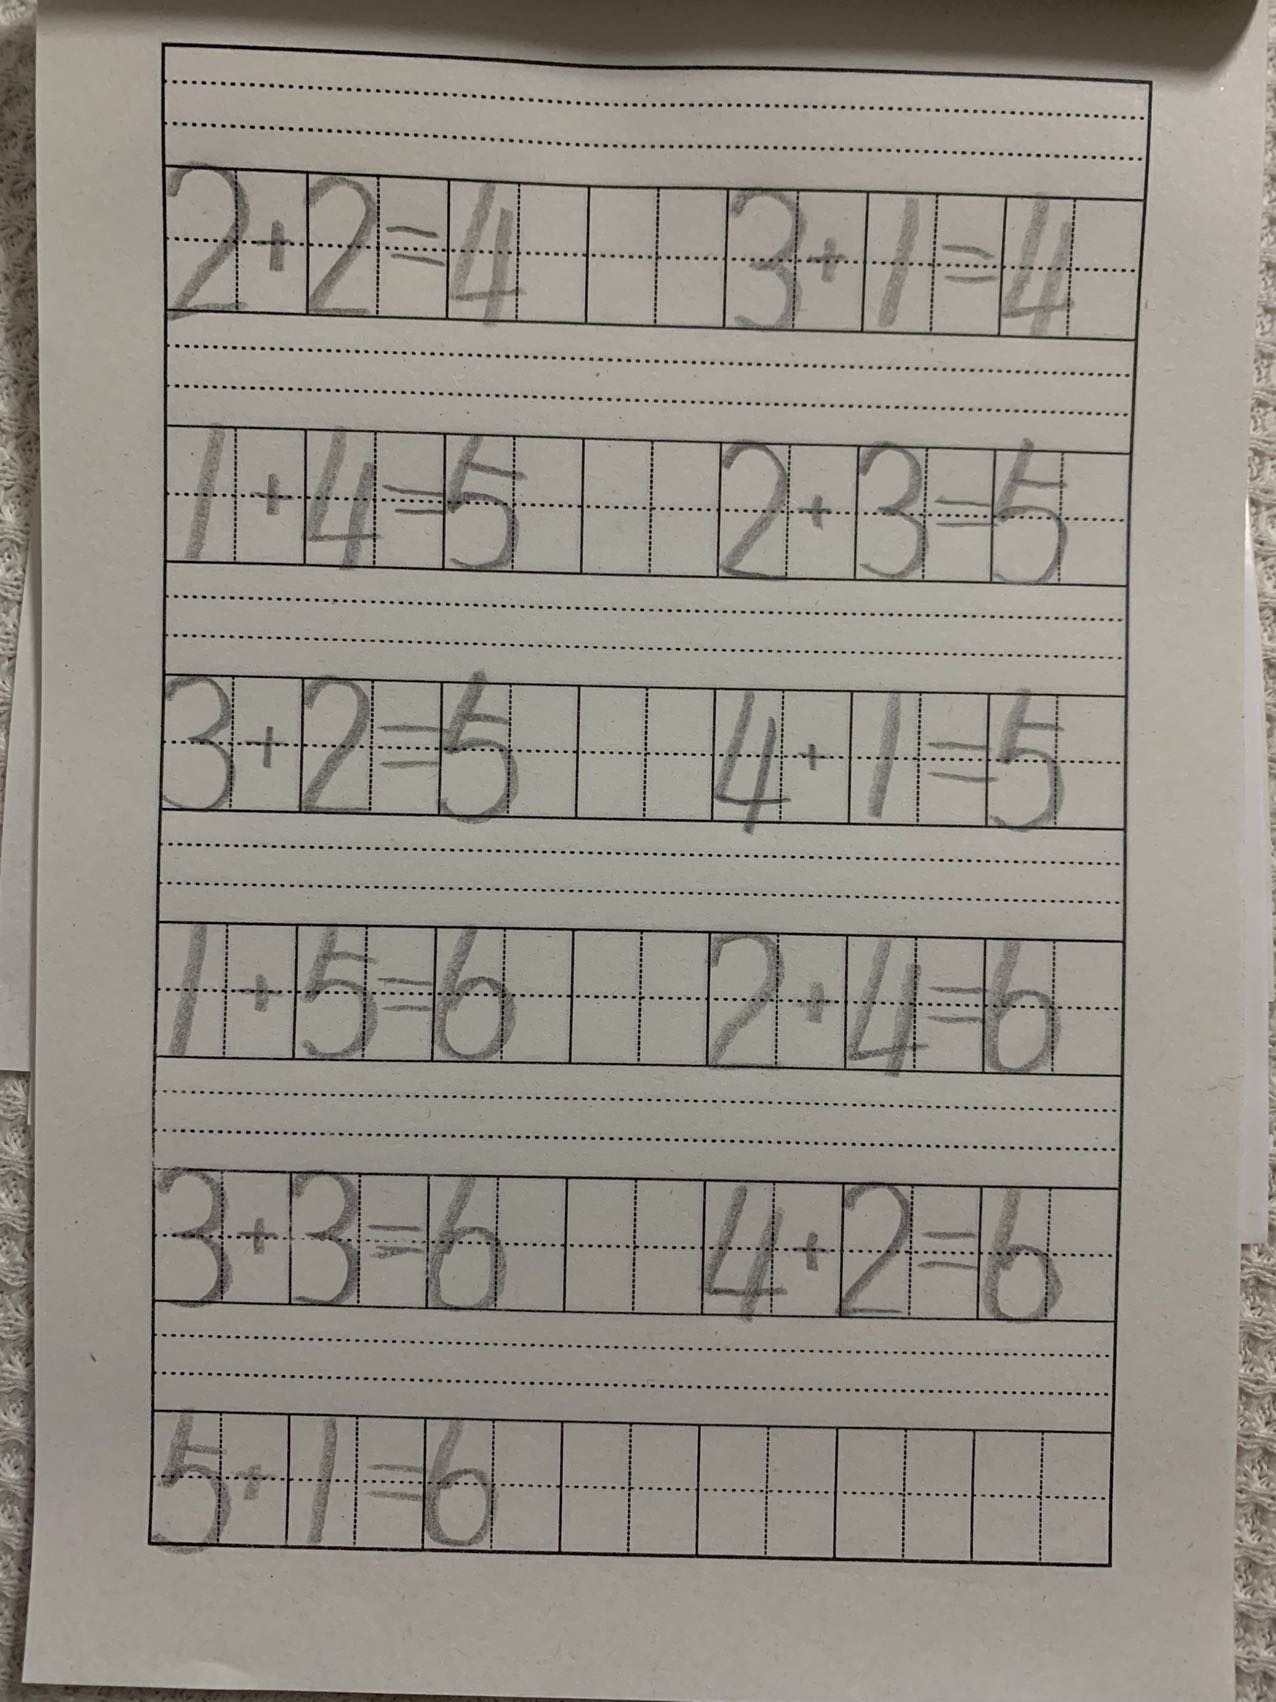 2+2=4 3+1=4
1+4=5 2+3=5
3+2=5 4+1=5
1+5=6 2+4=6
3+3=6 4+2=6
5+1=6